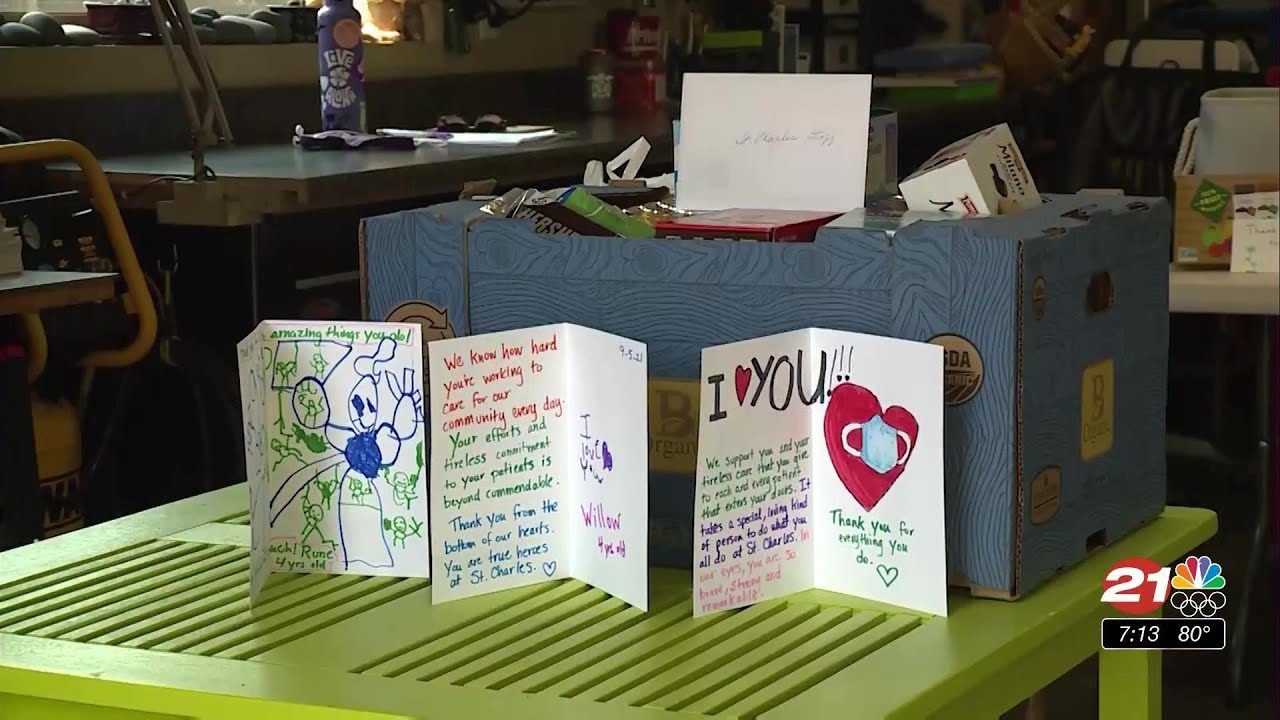 St. Charles Staff
Milano
HERSHEY
amazing things you do!
Rune
4 yrs old
We know how hard
you're working to
care for our
community every day.
Your efforts and
tireless commitment
to your patients is
beyond commendable.
Thank you from the
bottom of our hearts.
You are true heroes
at St. Charles.
9-5-21
I
love
you
Willow
4 yrs old
I YOU!!!
We support you and your
tireless care that you give
to each and every patient
that enters your doors. It
takes a special, loving kind
of person to do what you
all do at St. Charles. In
our eyes, you are so
brave, strong and
remarkable.
Thank you for
everything you
do.
B
Organic
USDA
ORGANIC
B
Organic
Thank
21
7:13 80°